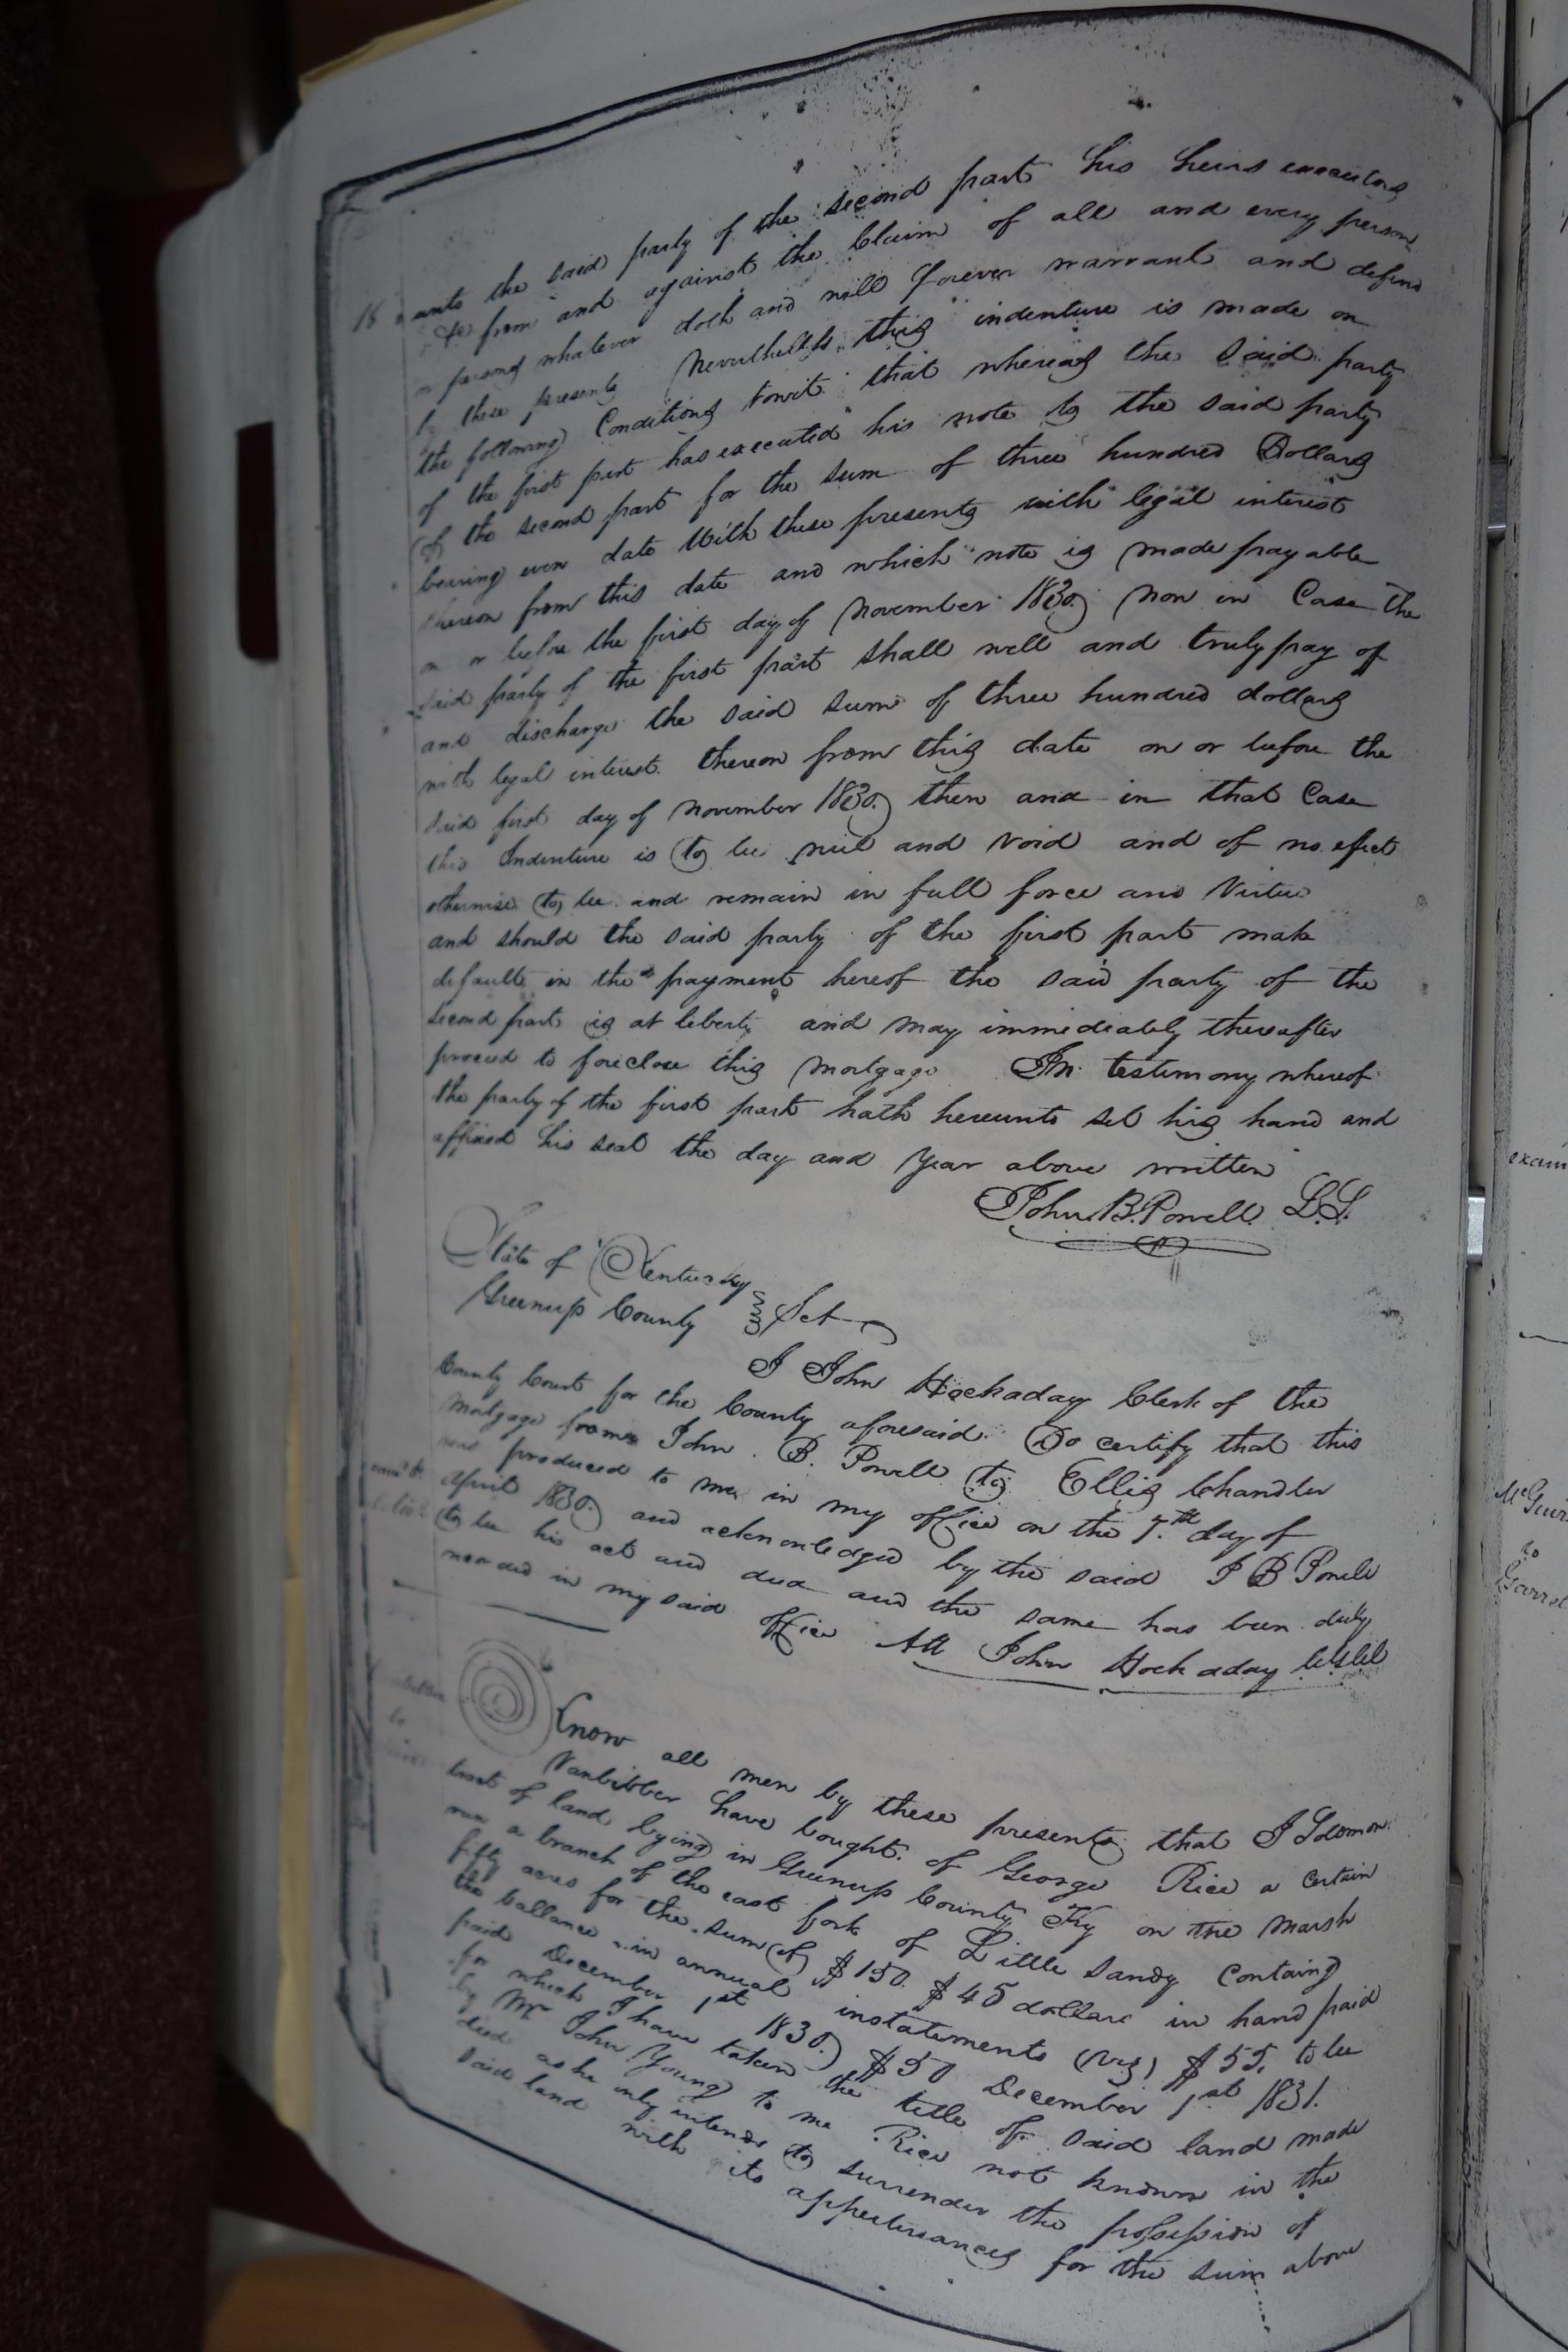 18
unto the said party of the second part his heirs executors
&c from and against the Claim of all and every person
or persons whatever doth and will forever warrant and defend
by these presents Nevertheless this indenture is made on
the following Conditions towit that whereas the said party
of the first part has executed his note to the said party
of the second part for the sum of three hundred Dollars
bearing even date With these presents with legal interest
thereon from this date and which note is made payable
on or before the first day of November 1830 Now in Case the
said party of the first part shall well and truly pay of
and discharge the said sum of three hundred dollars
with legal interest thereon from this date on or before the
said first day of November 1830 then and in that Case
this Indenture is to be null and void and of no efect
otherwise to be and remain in full force and Virtue
and should the said party of the first part make
default in the payment hereof the said party of the
second part is at liberty and may immediately thereafter
proceed to foreclose this Mortgage In testimony whereof
the party of the first part hath hereunto set his hand and
affixed his seal the day and Year above written
John B. Powell L.S.
State of Kentucky
Greenup County Sct
I John Hockaday Clerk of the
County Court for the County aforesaid Do certify that this
Mortgage from John B. Powell to Ellis Chandler
was produced to me in my office on the 7th day of
April 1830 and acknowledged by the said J B Powell
to be his act and deed and the same has been duly
recorded in my said office Att John Hockaday
Know all men by these presents that I Solomon
Vanbibber have bought of George Rice a certain
tract of land lying in Greenup County Ky on the Marsh
run a branch of the east fork of Little Sandy Containg
fifty acres for the sum of $150 $45 dollars in hand paid
the ballance in annual instatements (viz) $55, to be
paid December 1st 1830 $50 December 1st 1831.
for which I have taken the title of said land made
by Mr John Young to me Rice not known in the
deed as he only intends to surrender the possession of
said land with its appertinances for the sum above
exam
McGuire
to